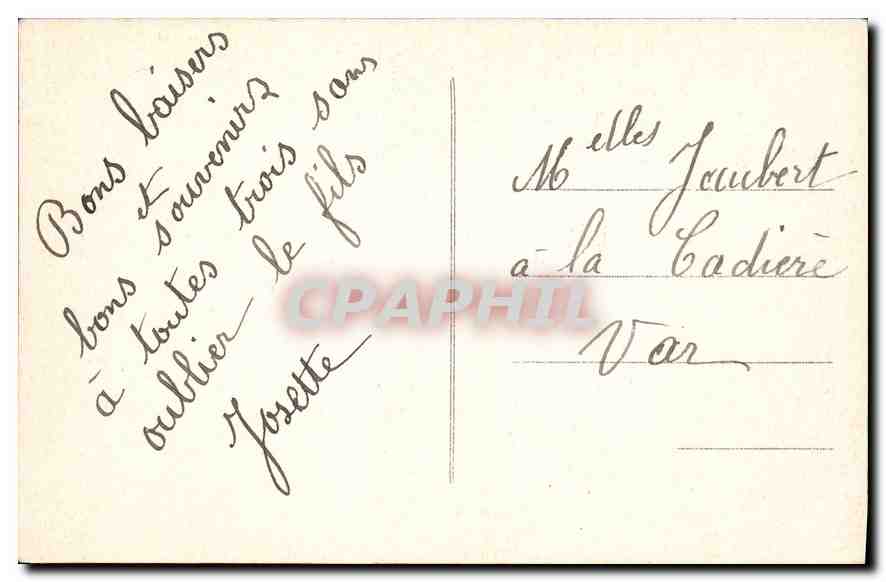 Bons baisers
et
bons souvenirs
à toutes trois sans
oublier le fils
Josette
Melles Jaubert
à la Cadière
Var
CPAPHIL